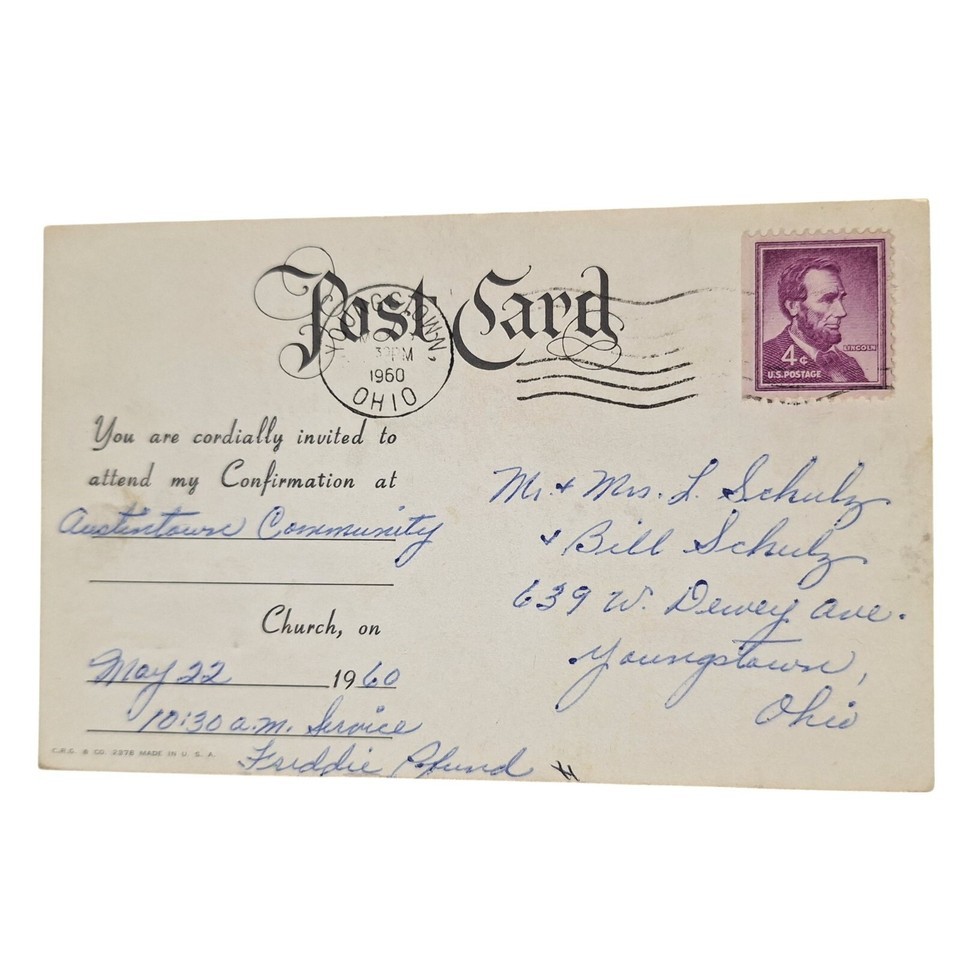 Post Card
YOUNGSTOWN,
30PM
1960
OHIO
4¢
LINCOLN
U.S. POSTAGE
You are cordially invited to
attend my Confirmation at
Austintown Community
Church, on
May 22 1960
10:30 a.m. Service
Freddie Pfund
C.R.G. & CO. MADE IN U. S. A.
Mr. + Mrs. L. Schulz
+ Bill Schulz
639 W. Dewey Ave.
Youngstown,
Ohio